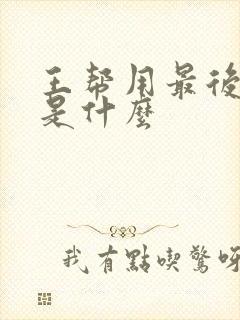 王幫用最後
是什麼
我有點喫驚呀